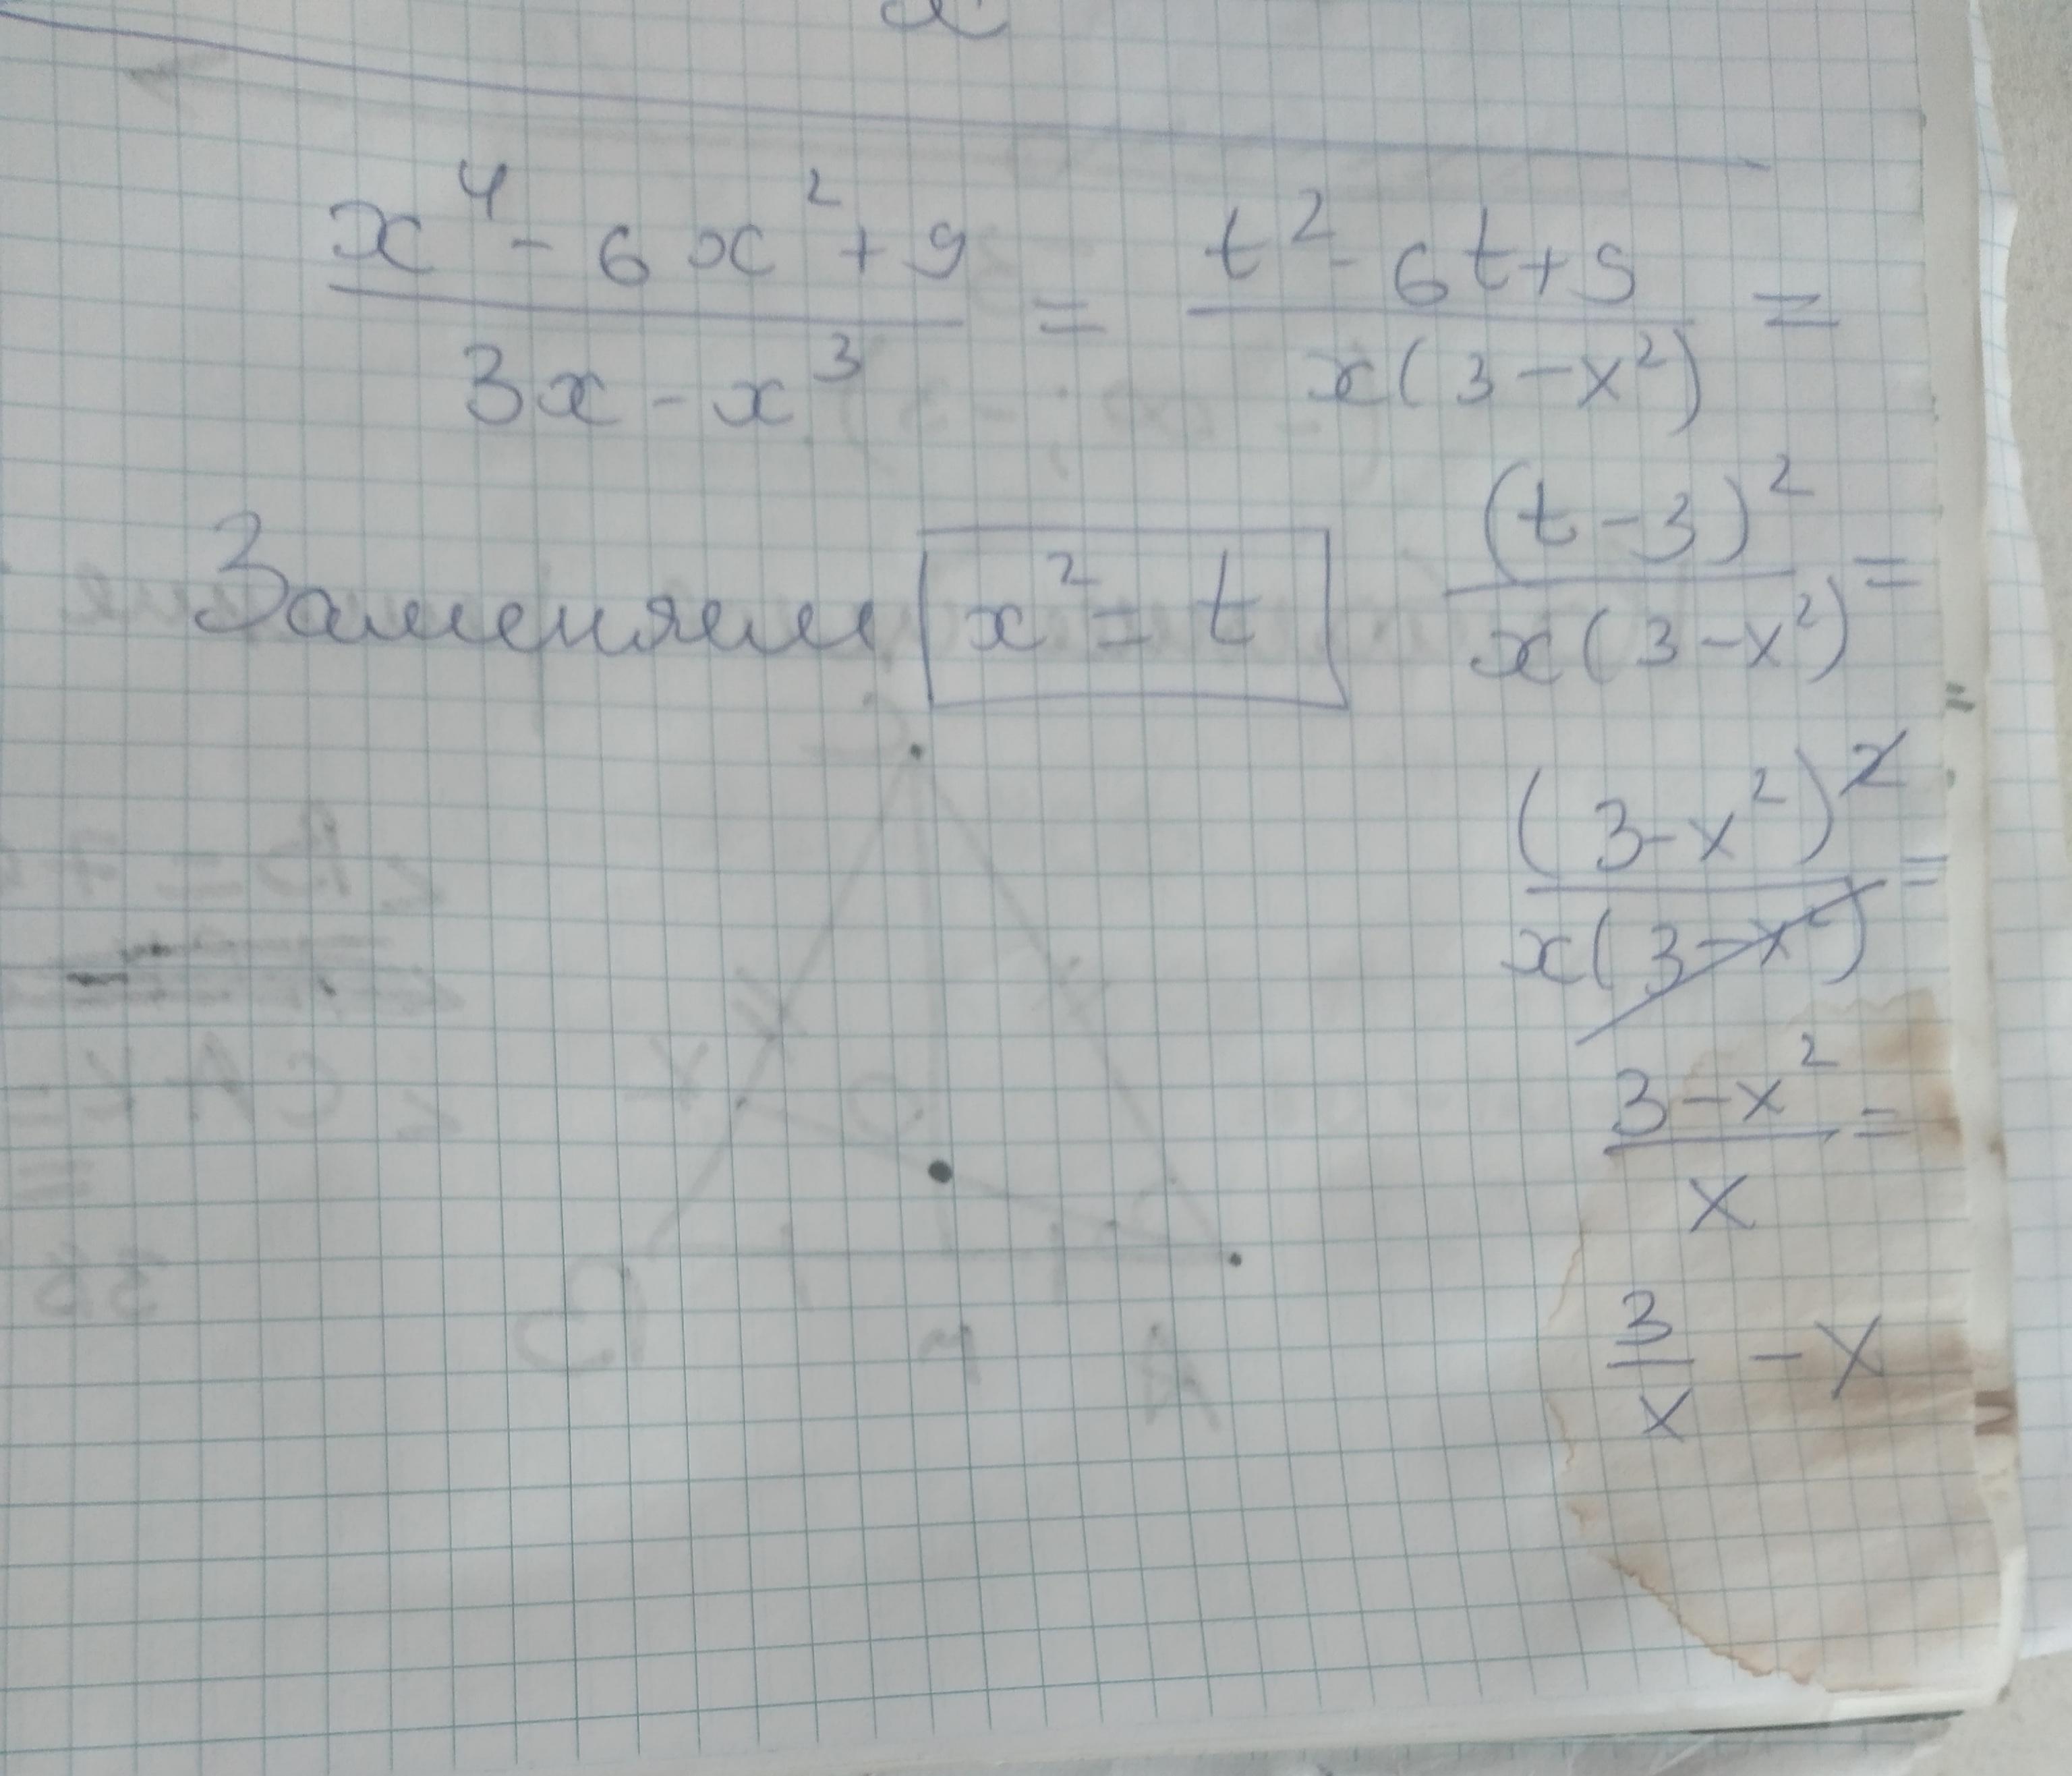 x⁴ - 6x² + 9 / 3x - x³ = t² - 6t + 9 / x(3 - x²) =
Заменяем x² = t
(t - 3)² / x(3 - x²) =
(3 - x²)² / x(3 - x²) =
3 - x² / x =
3 / x - x